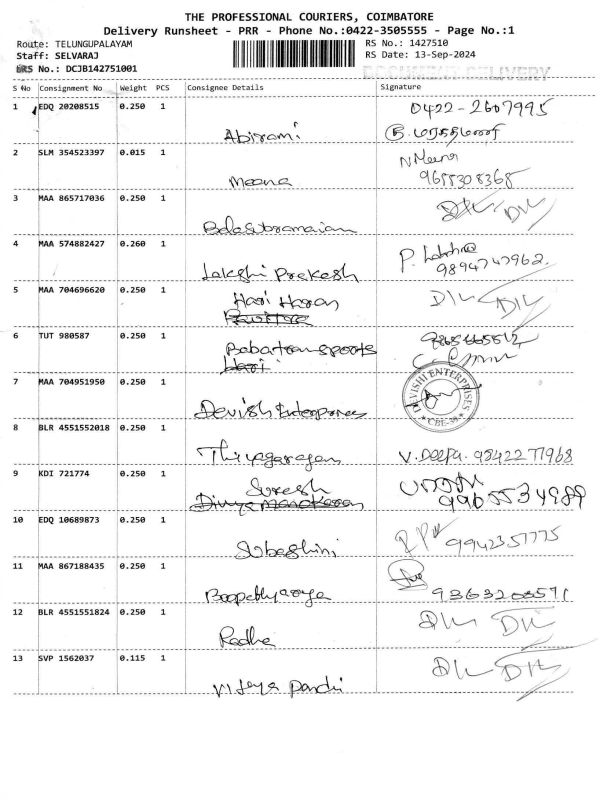 THE PROFESSIONAL COURIERS, COIMBATORE
Delivery Runsheet - PRR - Phone No.:0422-3505555 - Page No.:1
Route: TELUNGUPALAYAM
RS No.: 1427510
Staff: SELVARAJ
RS Date: 13-Sep-2024
DRS No.: DCJB142751001
DOCUMENT DELIVERY
S No Consignment No Weight PCS Consignee Details Signature
1 EDQ 20208515 0.250 1 Abirami 0422-2607995
2 SLM 354523397 0.015 1 Meena N Meena
9655308368
3 MAA 865717036 0.250 1 Balasubramaian
4 MAA 574882427 0.260 1 Lakshi Prakash P.
9894747962.
5 MAA 704696620 0.250 1 Hari Haran
6 TUT 980587 0.250 1 Baba transports
7 MAA 704951950 0.250 1 Devish Enterprises DEVISHI ENTERPRISES
CBE-39
8 BLR 4551552018 0.250 1 Thiyagarajan V. Deepa. 98422 77968
9 KDI 721774 0.250 1 Suresh
9965534989
10 EDQ 10689873 0.250 1 Subashini 9942357775
11 MAA 867188435 0.250 1 Boopathy 9363203571
12 BLR 4551551824 0.250 1 Radha
13 SVP 1562037 0.115 1 Vijaya Pandi